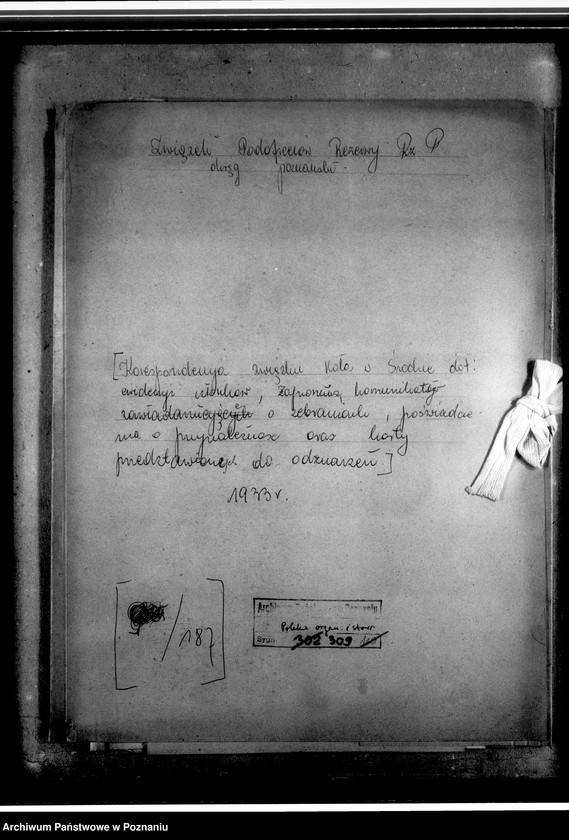 Związek Podoficerów Rezerwy Rz P
okręg poznański
[Korespondencja związku Koła w Środzie dot:
ewidencji członków, zaprowsz, komunikatów
zawiadamiających o zebraniach, poświadcze
nia o przynależność oraz listy
przedstawionych do odznaczeń.]
1933 r.
/187
Archiwum Państwowe w Poznaniu
Polskie organ. i stow
302 309
Archiwum Państwowe w Poznaniu